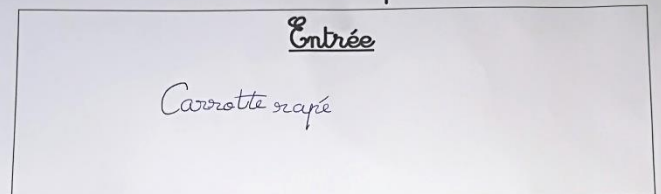 Entrée
Carrotte rapé